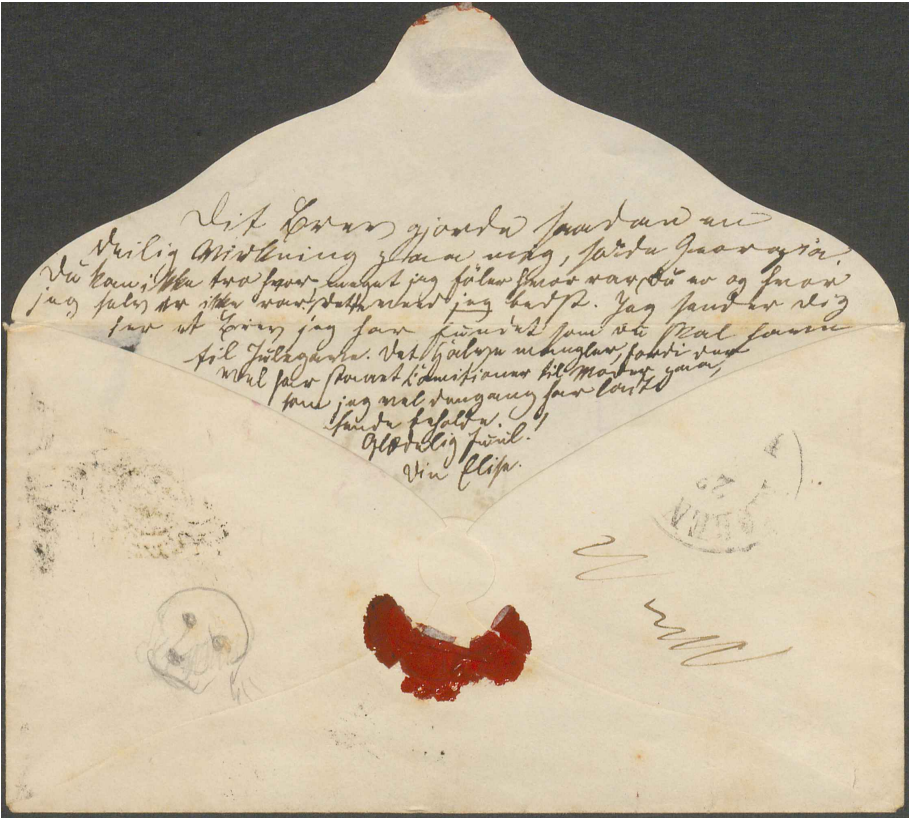 Dit Brev gjorde saadan en
deilig Virkning paa mig, søde Georgia.
Du kan ikke tro hvor meget jeg føler hvor rar Du er og hvor
jeg selv er ikke rar, dette veed jeg bedst. Jeg sender Dig
her et Brev jeg har fundet som Du skal have
til Julegave. Det Halve mangler, fordi der
vel har staaet til Moder paa,
som jeg vel dengang har ladet
hende beholde.
Glædelig Juul!
Din Elise.